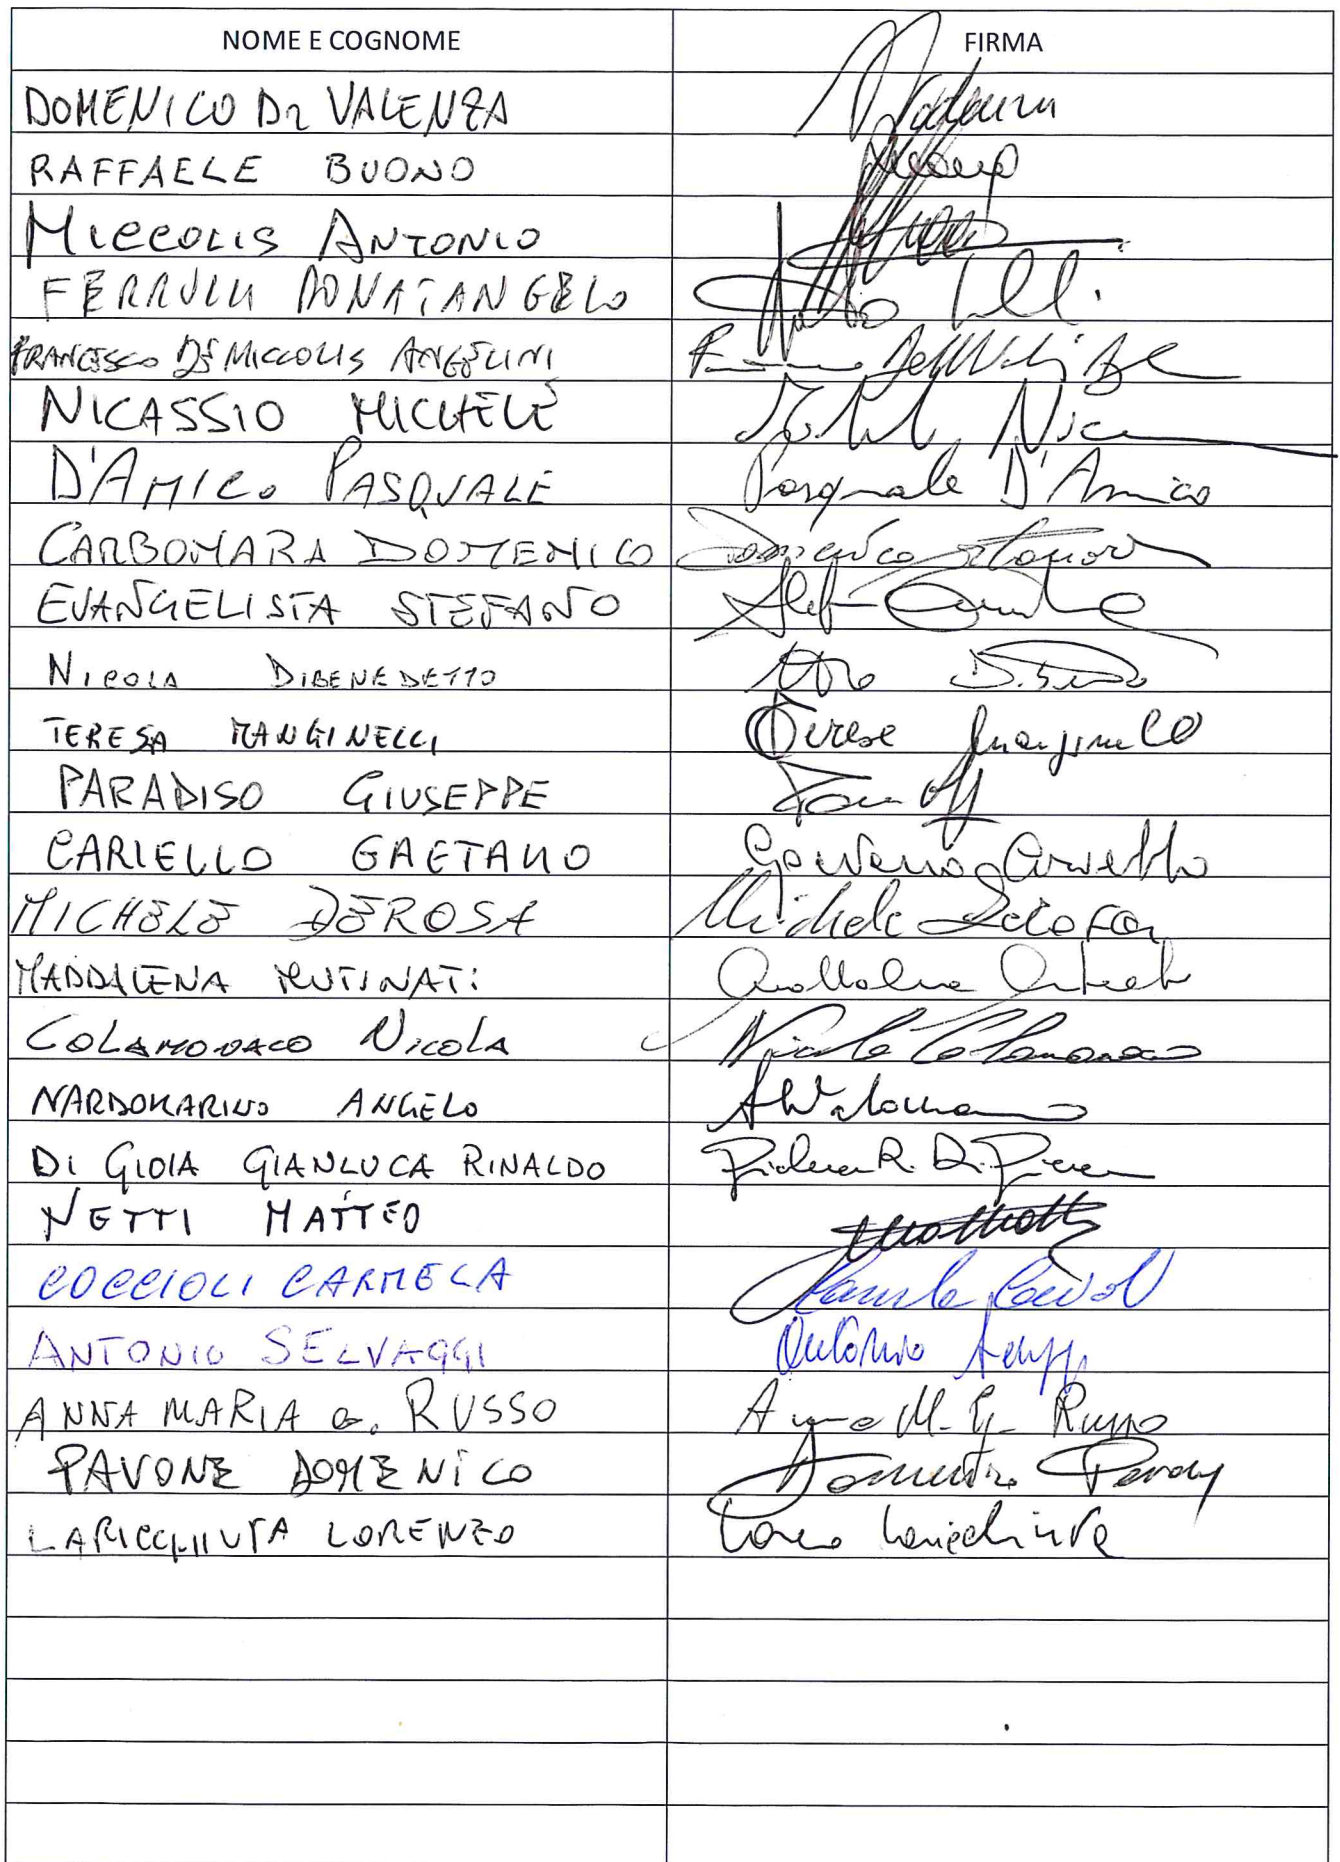 NOME E COGNOME FIRMA
DOMENICO DI VALENZA
RAFFAELE BUONO
MICCOLIS ANTONIO
FERRULLI DONATANGELO
FRANCESCO DE MICCOLIS ANGELINI
NICASSIO MICHELE
D'AMICO PASQUALE Pasquale D'Amico
CARBONARA DOMENICO Domenico
EVANGELISTA STEFANO
NICOLA DIBENEDETTO
TERESA MANGINELLI Teresa Manginelli
PARADISO GIUSEPPE
CARIELLO GAETANO Gaetano Cariello
MICHELE DEROSA Michele Derosa
MADDALENA MUTINATI Maddalena
COLAMONACO NICOLA Nicola Colamonaco
NARDOMARINO ANGELO
DI GIOIA GIANLUCA RINALDO Gianluca R. Di Gioia
NETTI MATTEO
COCCIOLI CARMELA Carmela Coccioli
ANTONIO SELVAGGI Antonio Selvaggi
ANNA MARIA G. RUSSO Anna M. G. Russo
PAVONE DOMENICO Domenico Pavone
LARICCHIUTA LORENZO Lorenzo Laricchiuta